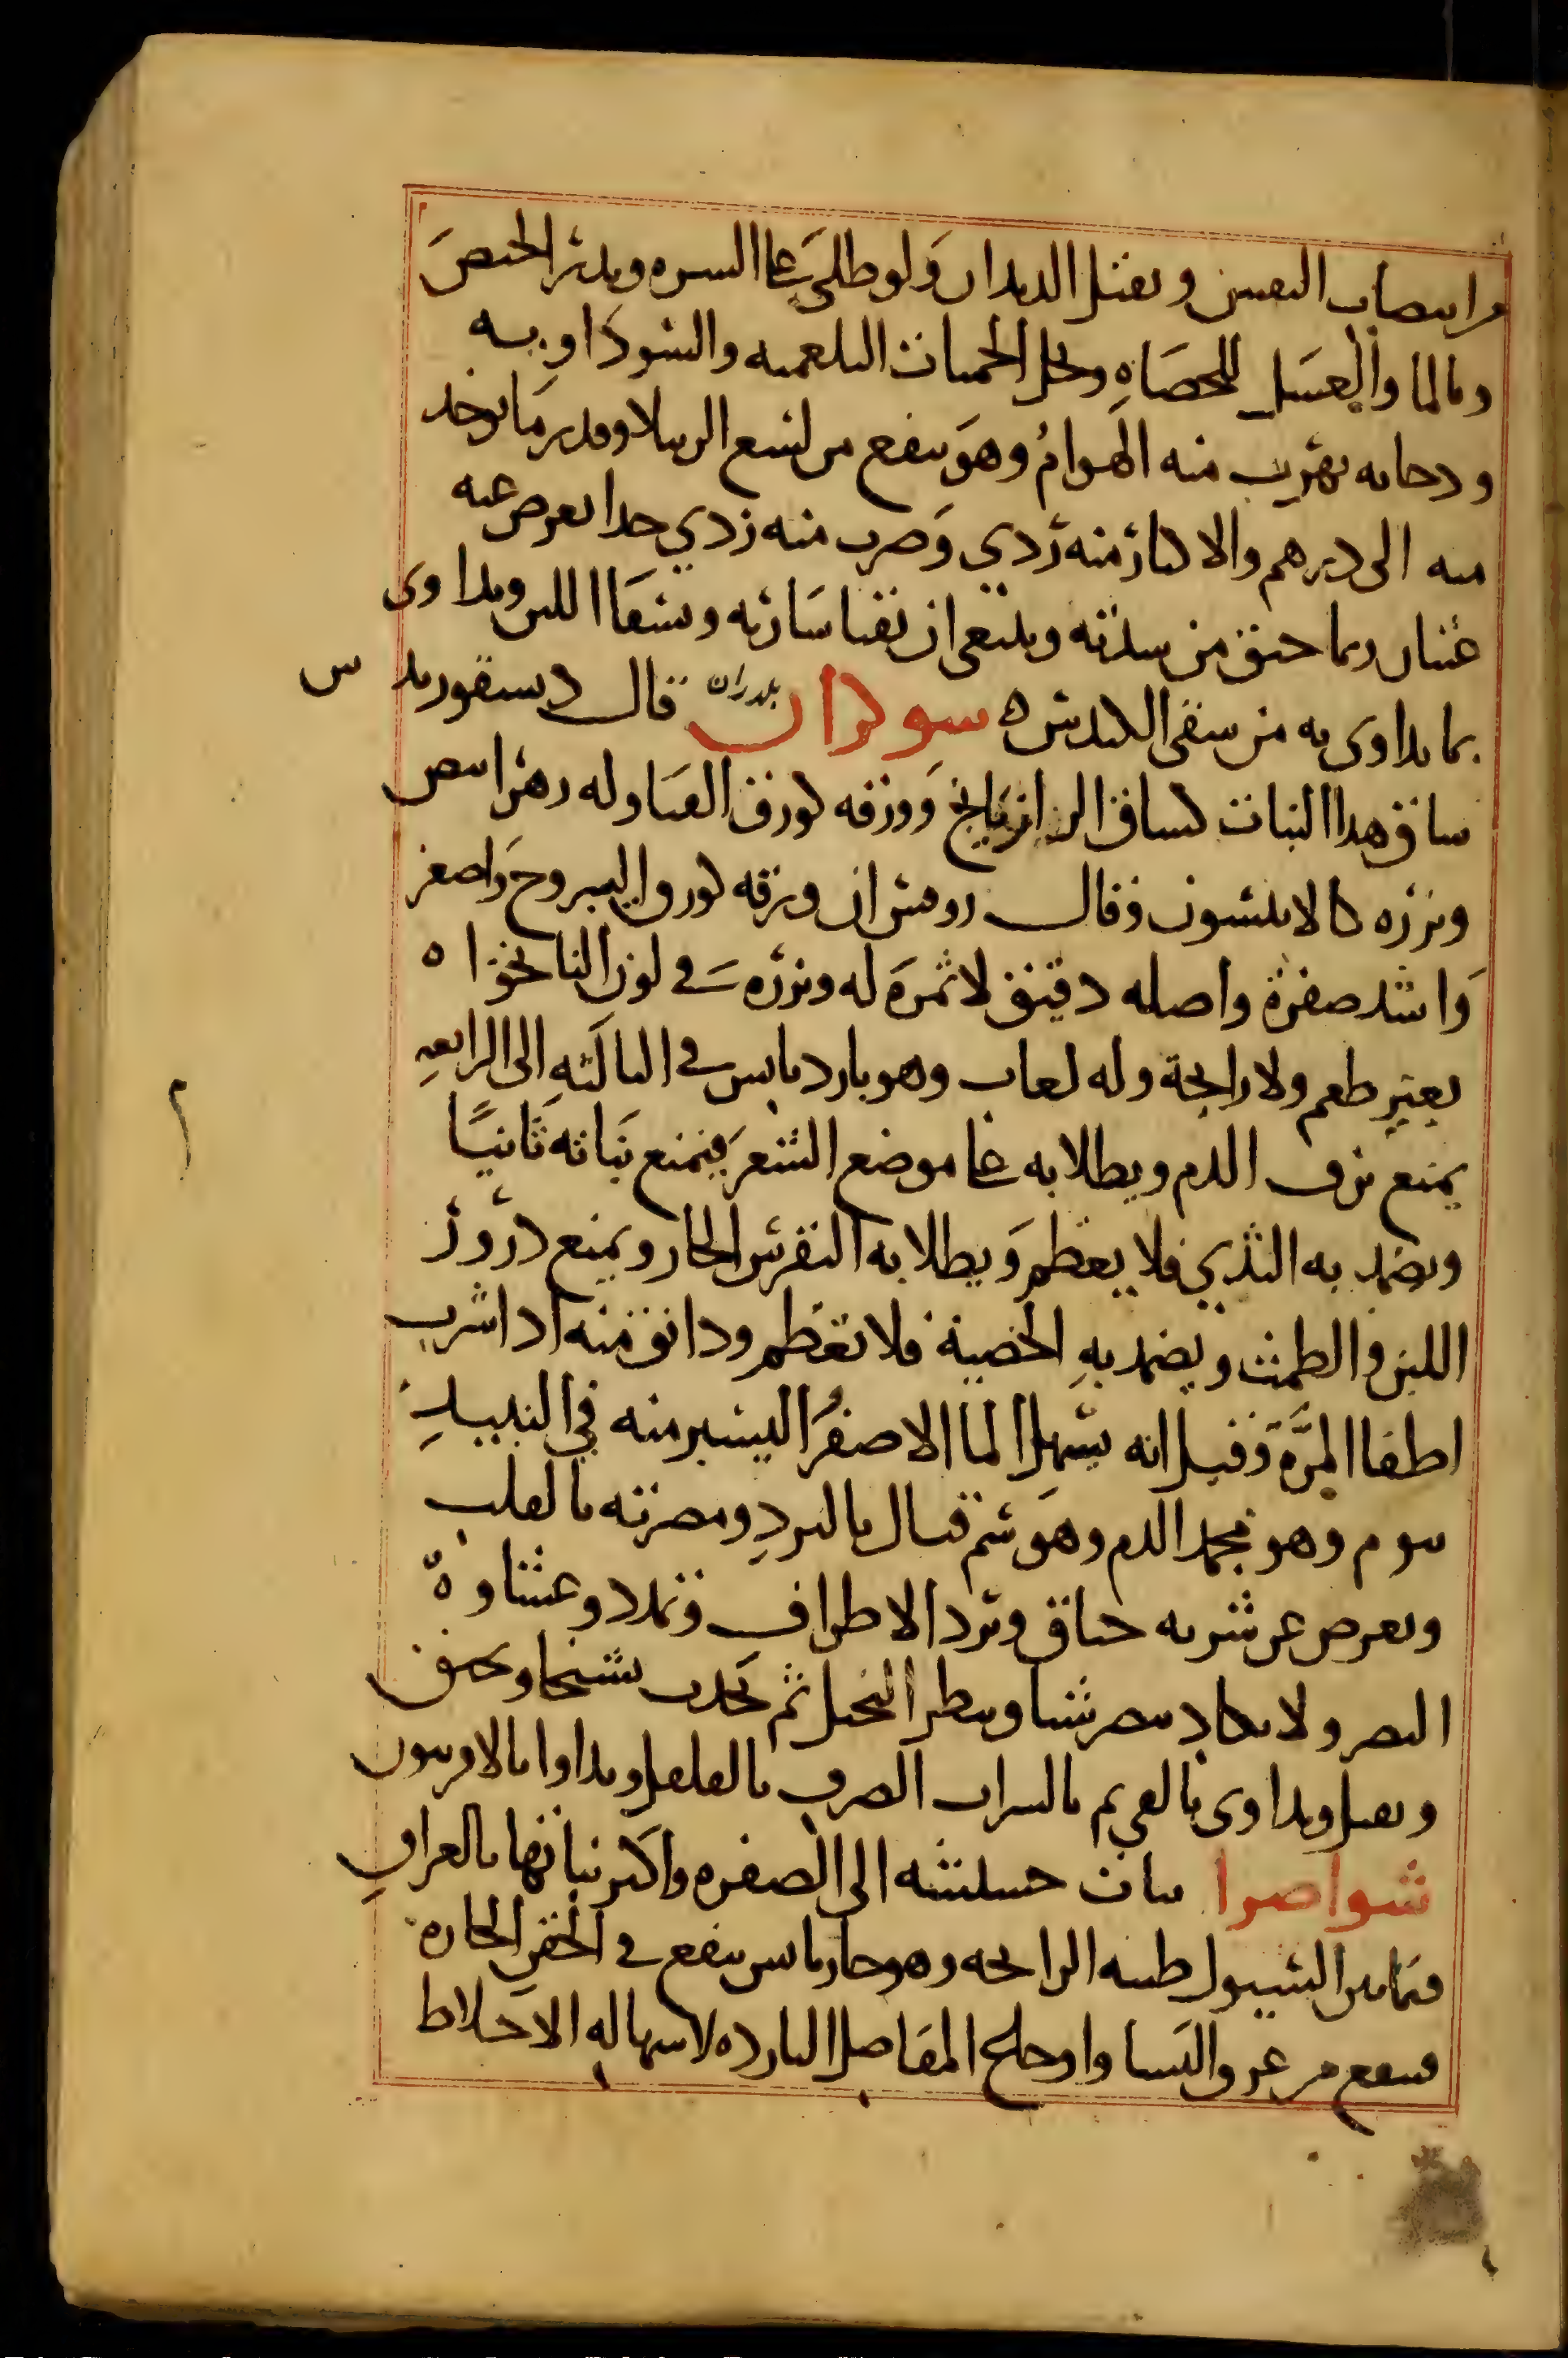 من انتصاب النفس ويقتل الديدان ولو طلى على السره ويدر الحيض
وبالما والعسل للحصاه ويحل الحميات البلغميه والسوداويه
ودخانه تهرب منه الهوام وهو ينفع من لسع الرتيلا وقدر ما يوخذ
منه الى درهم والاكثار منه ردي وضرب منه ردي جدا يعرض عنه
غثيان ربما خنق من سدته وينبغي ان يقيا شاربه ويسقا اللبن ويداوى
بما يداوى به من سقى الكندس ه سوكران بلدران قال ديسقوريدس
ساق هذا النبات كساق الرازيانج وورقه كورق القثا وله زهر ابيض
وبزره كالانيسون وقال روفس ان ورقه كورق اليبروح واصغر
واشد صفرة واصله دقيق لا ثمرة له وبزره في لون النانخواه
بغير طعم ولا رايحة وله لعاب وهو بارد يابس في الثالثه الى الرابعه
يمنع نزف الدم ويطلا به على موضع الشعر فيمنع نباته ثانيًا
ويضمد به الثدي فلا يعظم ويطلا به النقرس الحار ويمنع درور
اللبن والطمث ويضمد به الخصية فلا تعظم ودانق منه اذا شرب
اطفا المرة وقيل انه يسهل الما الاصفر اليسير منه في النبيد
ينوم وهو يجمد الدم وهو سم قتال بالبرد ومضرته بالقلب
ويعرض عن شربه خناق وبرد الاطراف وتمدد وغشاوة
البصر ولا يكاد يبصر شيا ويبطل التخيل ثم يحدث تشنجا ويخنق
ويقتل ويداوى بالقي ثم بالشراب الصرف بالفلفل ويداوا بالافربيون
شواصرا نبات حشيشه الى الصفره واكثر نباتها بالعراق
فى السيول طيبه الرايحه وهو حار يابس ينفع في الحقن الحاره
فينفع من عرق النسا واوجاع المفاصل البارده لاسهاله الاخلاط